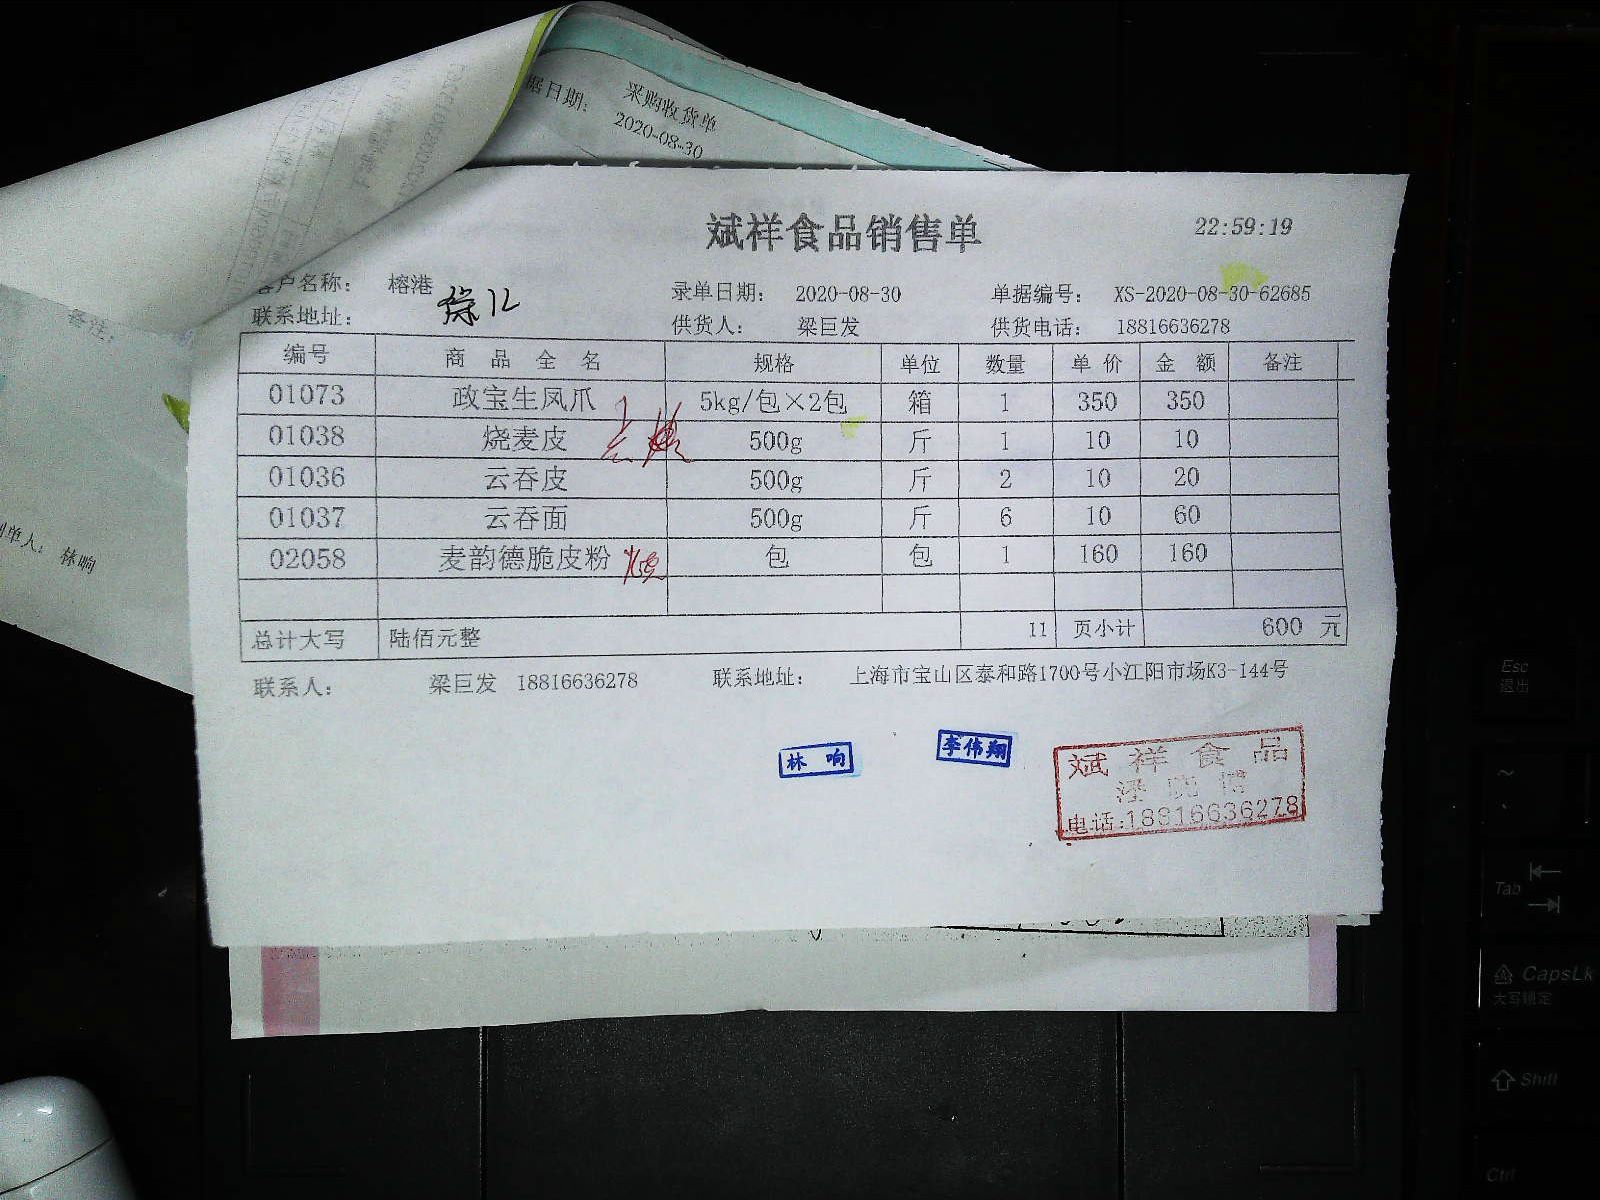 采购收货单
据日期：
2020-08-30
斌祥食品销售单
22:59:19
客户名称： 榕港
录单日期： 2020-08-30
单据编号： XS-2020-08-30-62685
联系地址：
供货人： 梁巨发
供货电话： 18816636278
编号 商品全名 规格 单位 数量 单价 金额 备注
01073 政宝生凤爪 5kg/包×2包 箱 1 350 350
01038 烧麦皮 500g 斤 1 10 10
01036 云吞皮 500g 斤 2 10 20
01037 云吞面 500g 斤 6 10 60
02058 麦韵德脆皮粉 包 包 1 160 160
总计大写 陆佰元整 11 页小计 600 元
联系人： 梁巨发 18816636278 联系地址： 上海市宝山区泰和路1700号小江阳市场K3-144号
林响
李伟翔
斌祥食品
电话:18816636278
备注：
制单人： 林响
Esc
退出
Tab
CapsLk
大写锁定
Shift
Ctrl